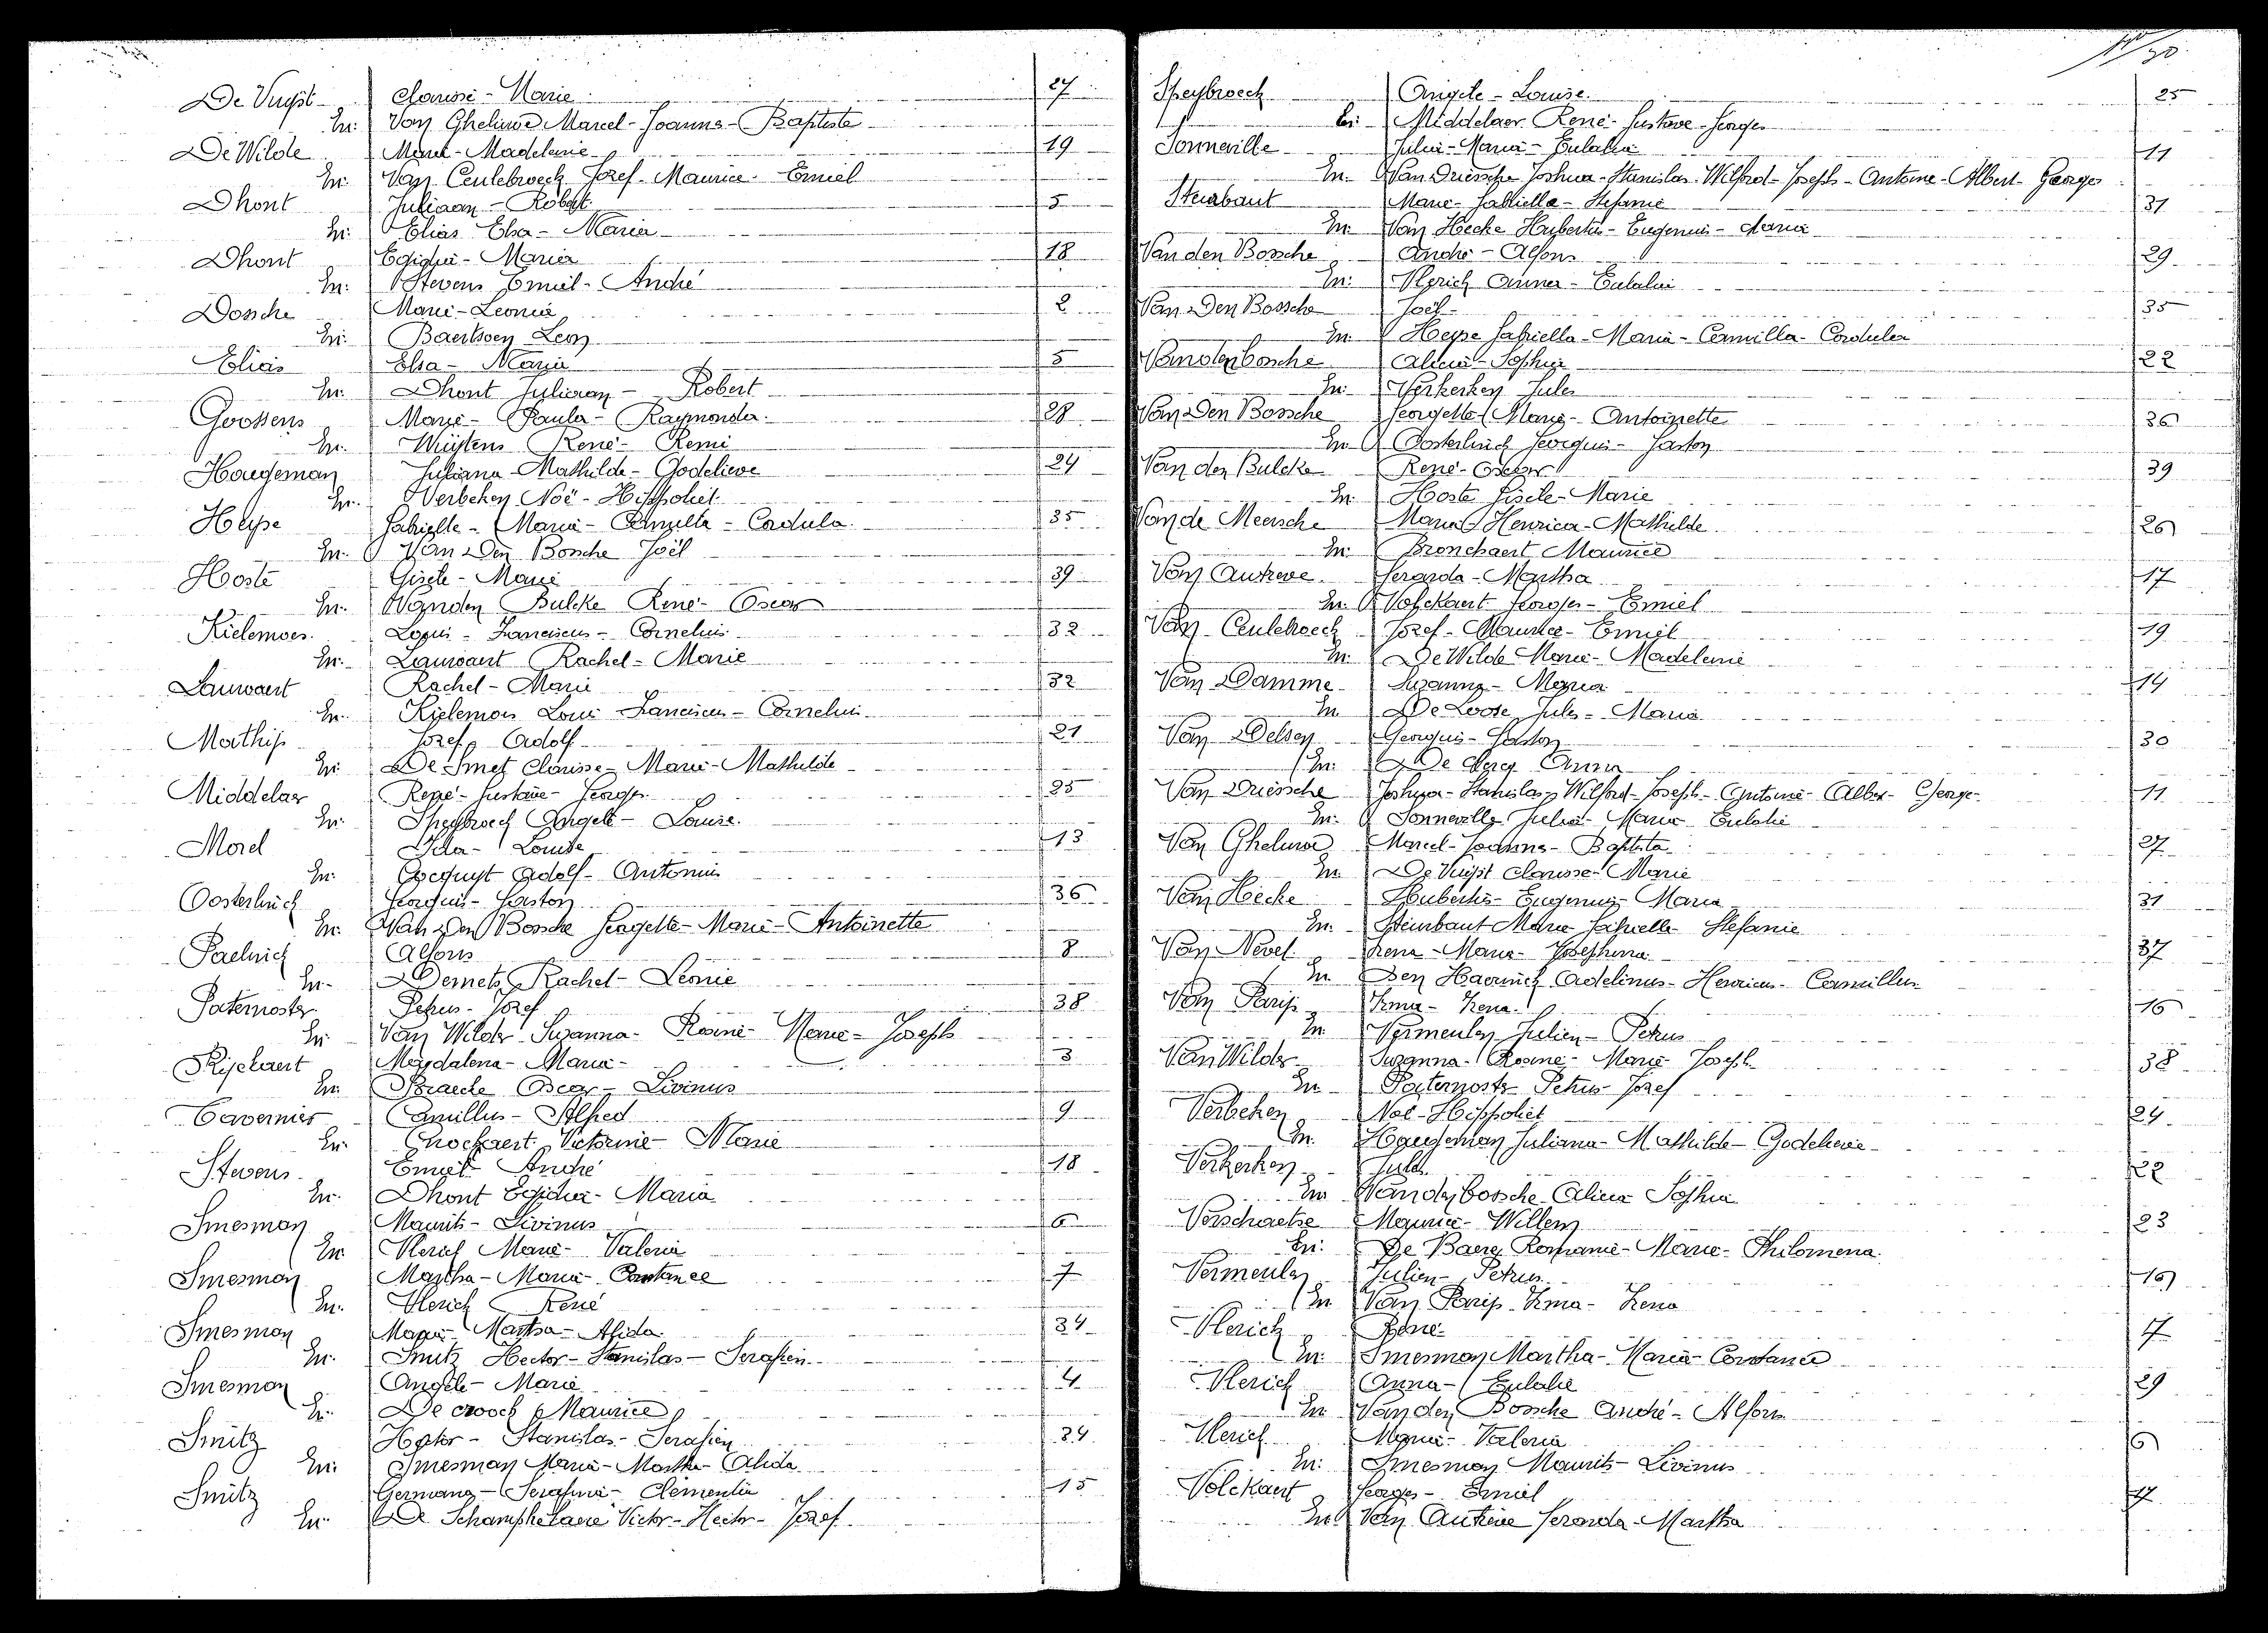 De Vuyst Clarisse - Marie 27
En: Van Gheluwe Marcel - Joanna - Baptiste
De Wilde Marie - Madeleine 19
En: Van Ceulebroeck Jozef - Maurice - Emiel
Dhont Juliaan - Robert 5
En: Elias Elsa - Maria
Dhont Egidia - Maria 18
En: Stevens Emiel - André
Dossche Marie - Leonie 2
En: Baertsoen Leon
Elias Elsa - Maria 5
En: Dhont Juliaan - Robert
Goossens Marie - Paula - Raymonda 28
En: René - Remi
Haegeman Juliana - Mathilde - Godelieve 24
En: Verbeken Noë - Hippoliet
Heyse Gabrielle - Maria - Camilla - Cordula 35
En: Van Den Bossche Joël
Hoste Gisèle - Marie 39
En: Vanden Bulcke René - Oscar
Kielemoes Louis - Franciscus - Cornelius 32
En: Lauwaert Rachel - Marie
Lauwaert Rachel - Marie 32
En: Kielemoes Louis Franciscus - Cornelius
Mathijs Jozef Adolf 21
En: De Smet Clarisse - Marie - Mathilde
Middelaer René - Gustave - Georges 25
En: Speybroeck Angèle - Louise
Morel Ida - Louise 13
En: Adolf - Antonius
Oosterlinck Georges - Gaston 36
En: Van Den Bossche Georgette - Marie - Antoinette
Paelinck Alfons 8
En: Demets Rachel - Leonie
Paternoster Petrus - Jozef 38
En: Van Wilder Suzanna - Rosine - Marie - Joseph
Rijckaert Magdalena - Maria 3
En: Braeckle Oscar - Livinus
Tavernier Camillus - Alfred 9
En: Victorine - Marie
Stevens Emiel André 18
En: Dhont Egidia - Maria
Smesman Maurits - Livinus 6
En: Vlerick Marie - Valerie
Smesman Martha - Maria - Constance 7
En: Vlerick René
Smesman Maria - Martha - Alida 34
En: Smitz Hector - Stanislas - Serafien
Smesman Angèle - Marie 4
En: De Croock Maurice
Smitz Hector - Stanislas - Serafien 34
En: Smesman Maria - Martha - Alida
Smitz Germana - Serafina - Clementia 15
En: De Schamphelaere Victor - Hector - Jozef
N 30
Speybroeck Angèle - Louise 25
En: Middelaer René - Gustave - Georges
Sonneville Julia - Maria - Eulalia 11
En: Van Driessche Joshua - Stanislas - Wilfred - Joseph - Antoine - Albert - Georges
Steurbaut Marie - Gabriella - Stefanie 31
En: Van Hecke Hubertus - Eugenius - Maria
Van den Bossche André - Alfons 29
En: Vlerick Anna - Eulalie
Van Den Bossche Joël 35
En: Heyse Gabriella - Maria - Camilla - Cordula
Vandenbossche Alicia - Sophia 22
En: Verkerken Jules
Van Den Bossche Georgette Marie - Antoinette 36
En: Oosterlinck Georges - Gaston
Van den Bulcke René - Oscar 39
En: Hoste Gisèle - Marie
Van de Meersche Maria Henrica - Mathilde 26
En: Bronchaert Maurice
Van Autreve Gerarda - Martha 17
En: Volckaert Georges - Emiel
Van Ceulebroeck Jozef - Maurice - Emiel 19
En: De Wilde Marie - Madeleine
Van Damme Suzanna - Maria 14
En: De Loose Jules - Maria
Van Delsen Georges - Gaston 30
En: De Clercq Anna
Van Driessche Joshua - Stanislas - Wilfred - Joseph - Antoine - Albert - George 11
En: Sonneville Julia - Maria - Eulalie
Van Gheluwe Marcel - Joanna - Baptista 27
En: De Vuyst Clarisse - Marie
Van Hecke Hubertus - Eugenius - Maria 31
En: Steurbaut Maria Gabrielle Stefanie
Van Nevel Irena - Maria - Josephina 37
En: Den Haerinck Adelinus - Henricus - Camillus
Van Parijs Irma - Irena 16
En: Vermeulen Julien - Petrus
Van Wilder Suzanna - Rosine - Marie - Joseph 38
En: Paternoster Petrus - Jozef
Verbeken Noë - Hippoliet 24
En: Haegeman Juliana - Mathilde - Godelieve
Verkerken Jules 22
En: Vandenbossche Alicia Sophia
Verschaetse Maurice - Willem 23
En: De Baere Romanie - Marie - Philomena
Vermeulen Julien - Petrus 16
En: Van Parijs Irma - Irena
Vlerick René 7
En: Smesman Martha - Maria - Constance
Vlerick Anna - Eulalie 29
En: Van den Bossche André - Alfons
Vlerick Marie - Valerie 6
En: Smesman Maurits - Livinus
Volckaert Georges - Emiel 17
En: Van Autreve Gerarda - Martha